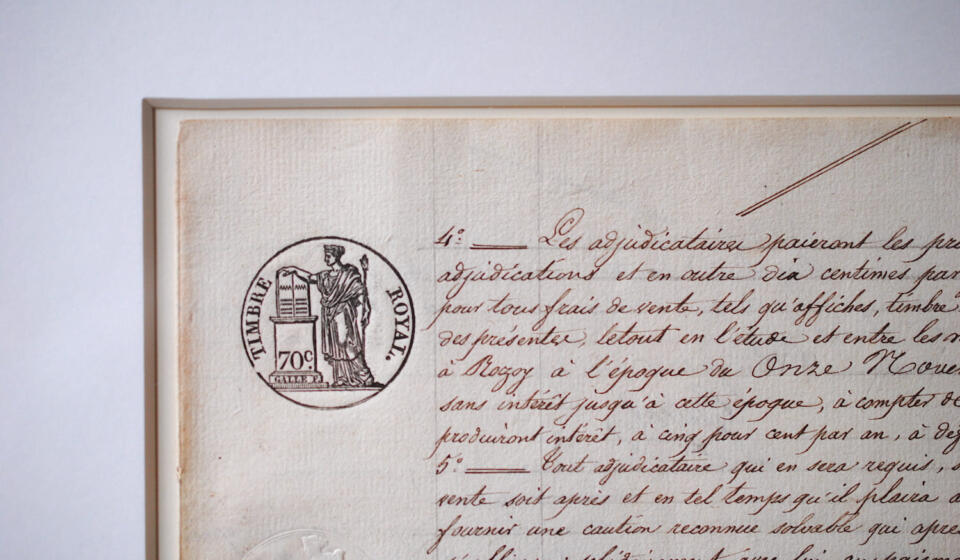 TIMBRE ROYAL.
70c.
GALLE F.
4.° Les adjudicataires paieront les
adjudications et en outre dix centimes par
pour tous frais de vente, tels qu'affiches, timbre
des présentes, le tout en l'étude et entre les
à Rozoy à l'époque du Onze
sans intérêt jusqu'à cette époque, à compter de
produiront intérêt, à cinq pour cent par an, à
5.° Tout adjudicataire qui en sera requis,
vente soit après et en tel temps qu'il plaira
fournir une caution reconnue solvable qui